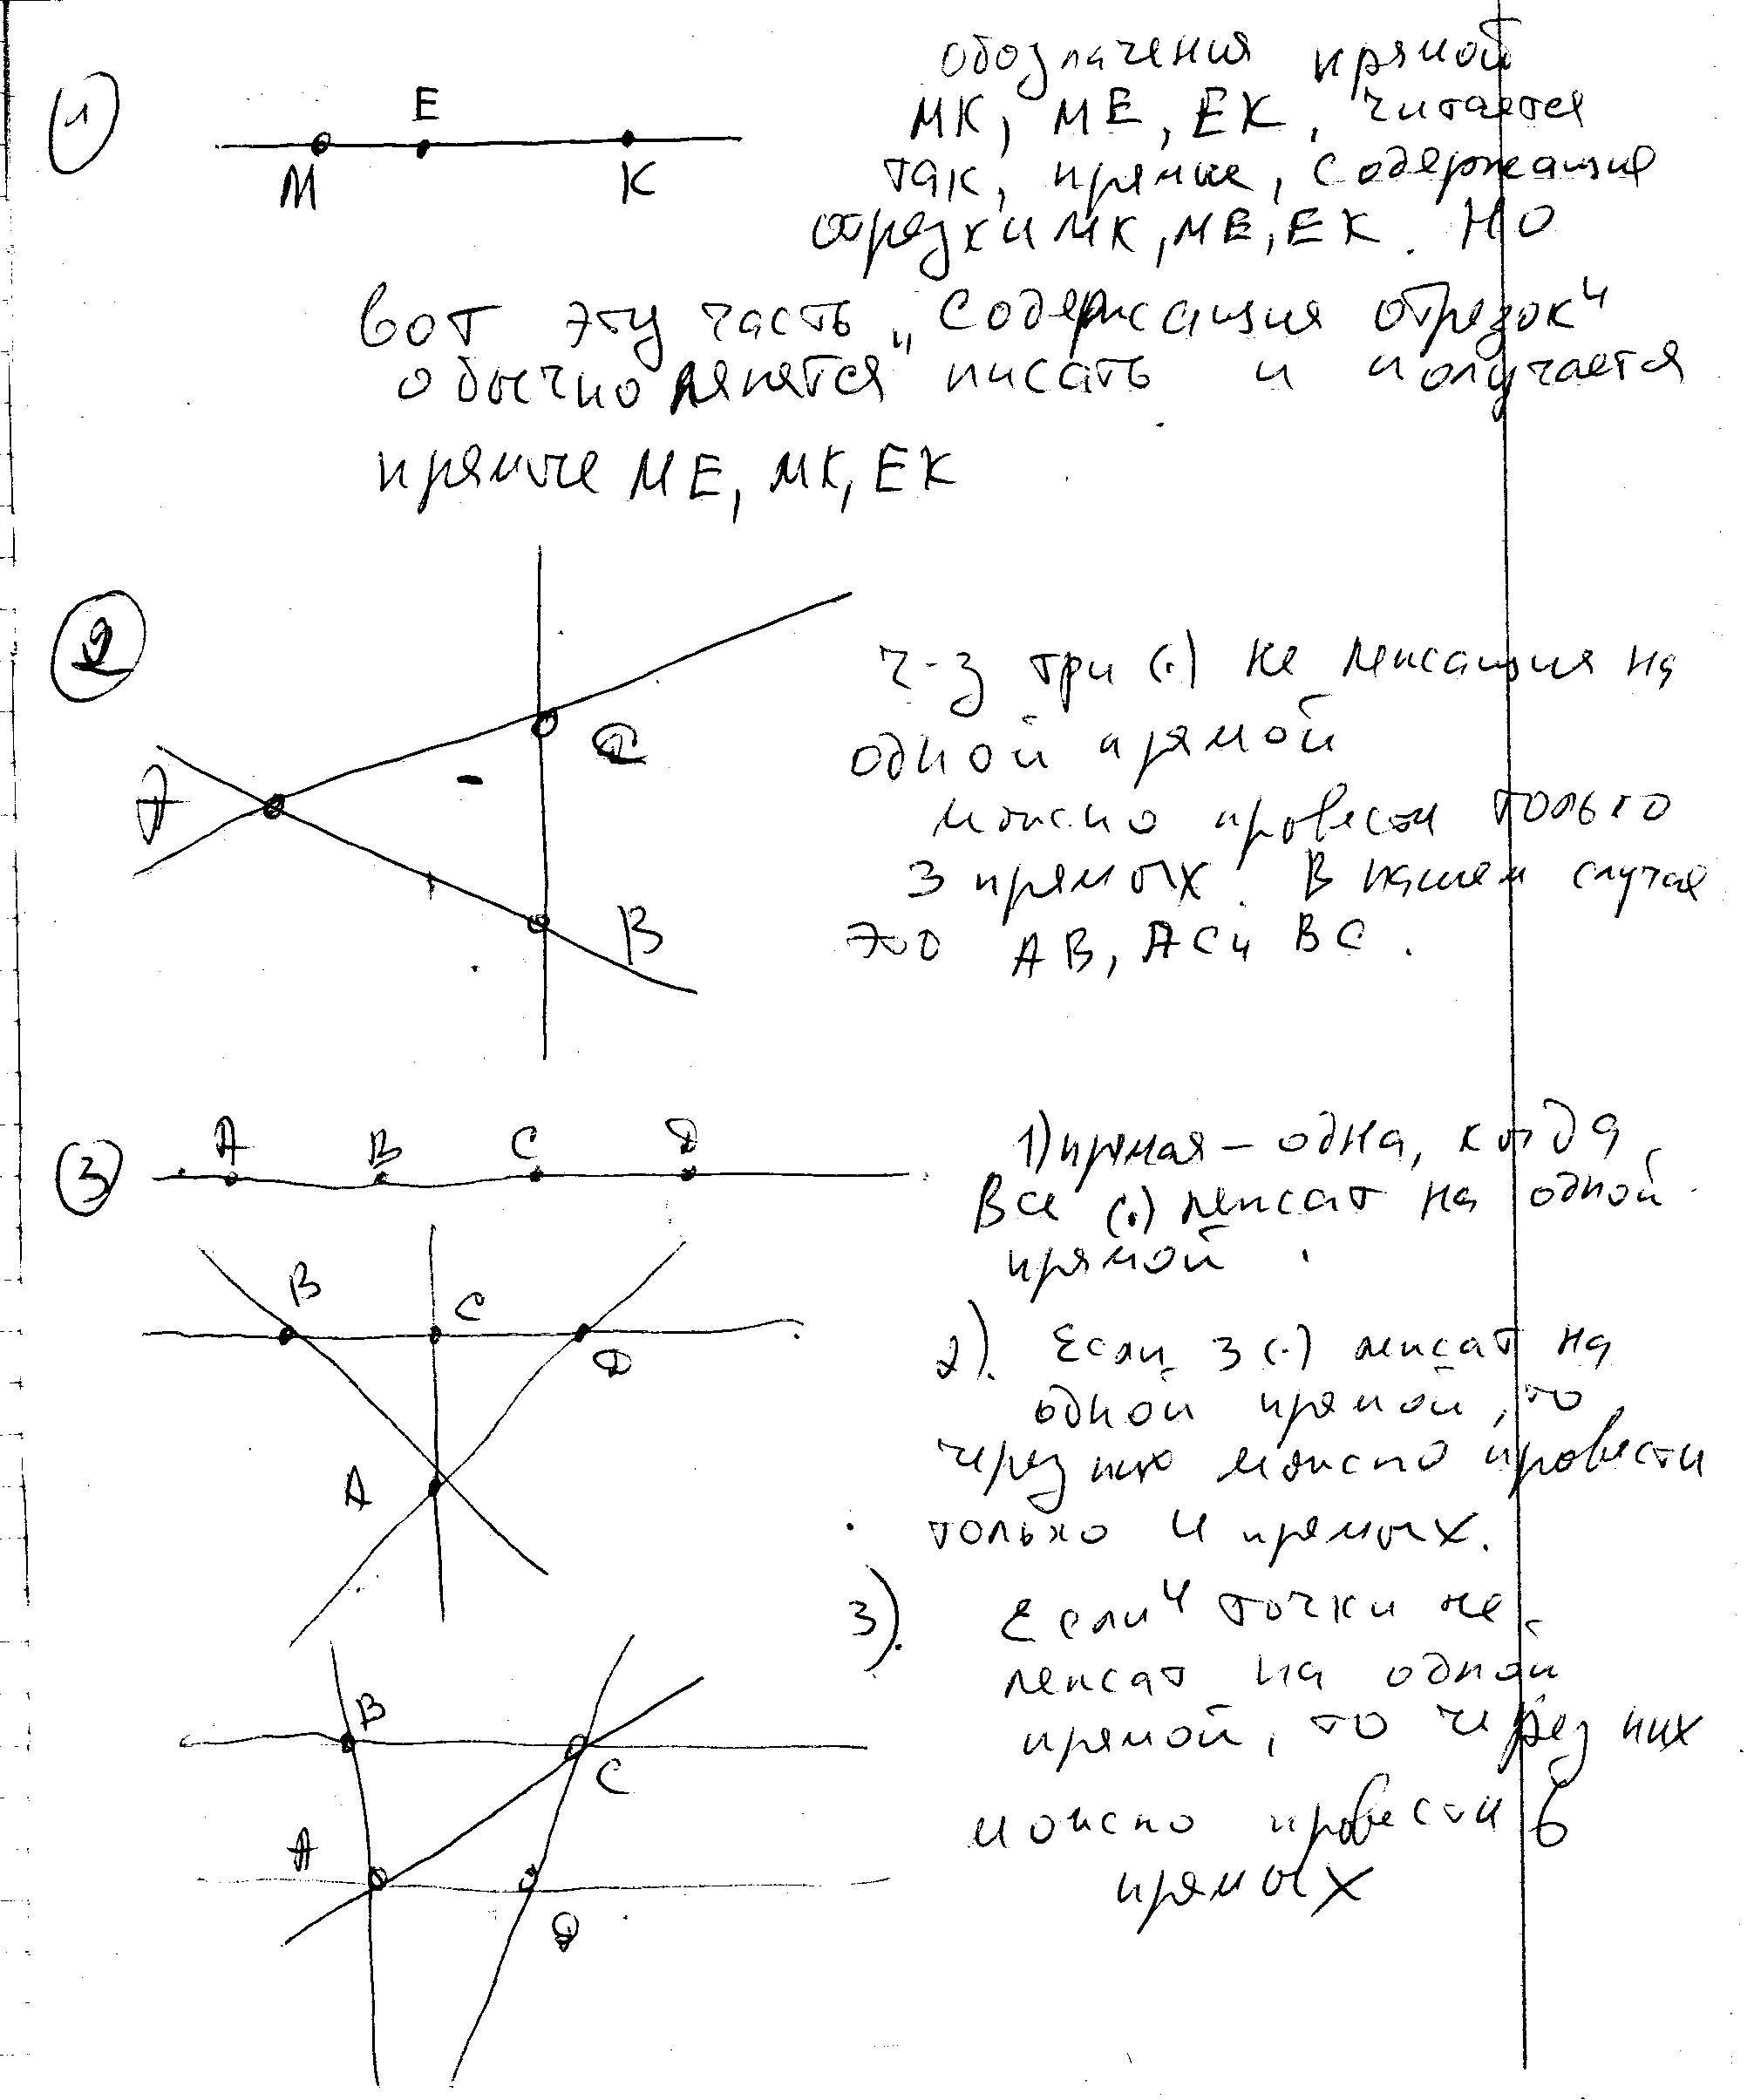 1
E
M
K
обозначения прямой
МК, МЕ, ЕК, читается
так, прямые, содержащие
отрезки МК, МЕ, ЕК. НО
вот эту часть „содержащия отрезок“
обычно ленятся писать и получается
прямые МЕ, МК, ЕК
2
A
C
B
ч-з три (.) не лежащия на
одной прямой
можно провести только
3 прямых. В нашем случае
это АВ, АС и ВС.
3
A B C D
1) прямая – одна, когда
все (.) лежат на одной
прямой.
B
C
D
A
2). Если 3 (.) лежат на
одной прямой, то
через них можно провести
только 4 прямых.
3). Если 4 точки не
лежат на одной
прямой, то через них
можно провести 6
прямых
B
C
A
D